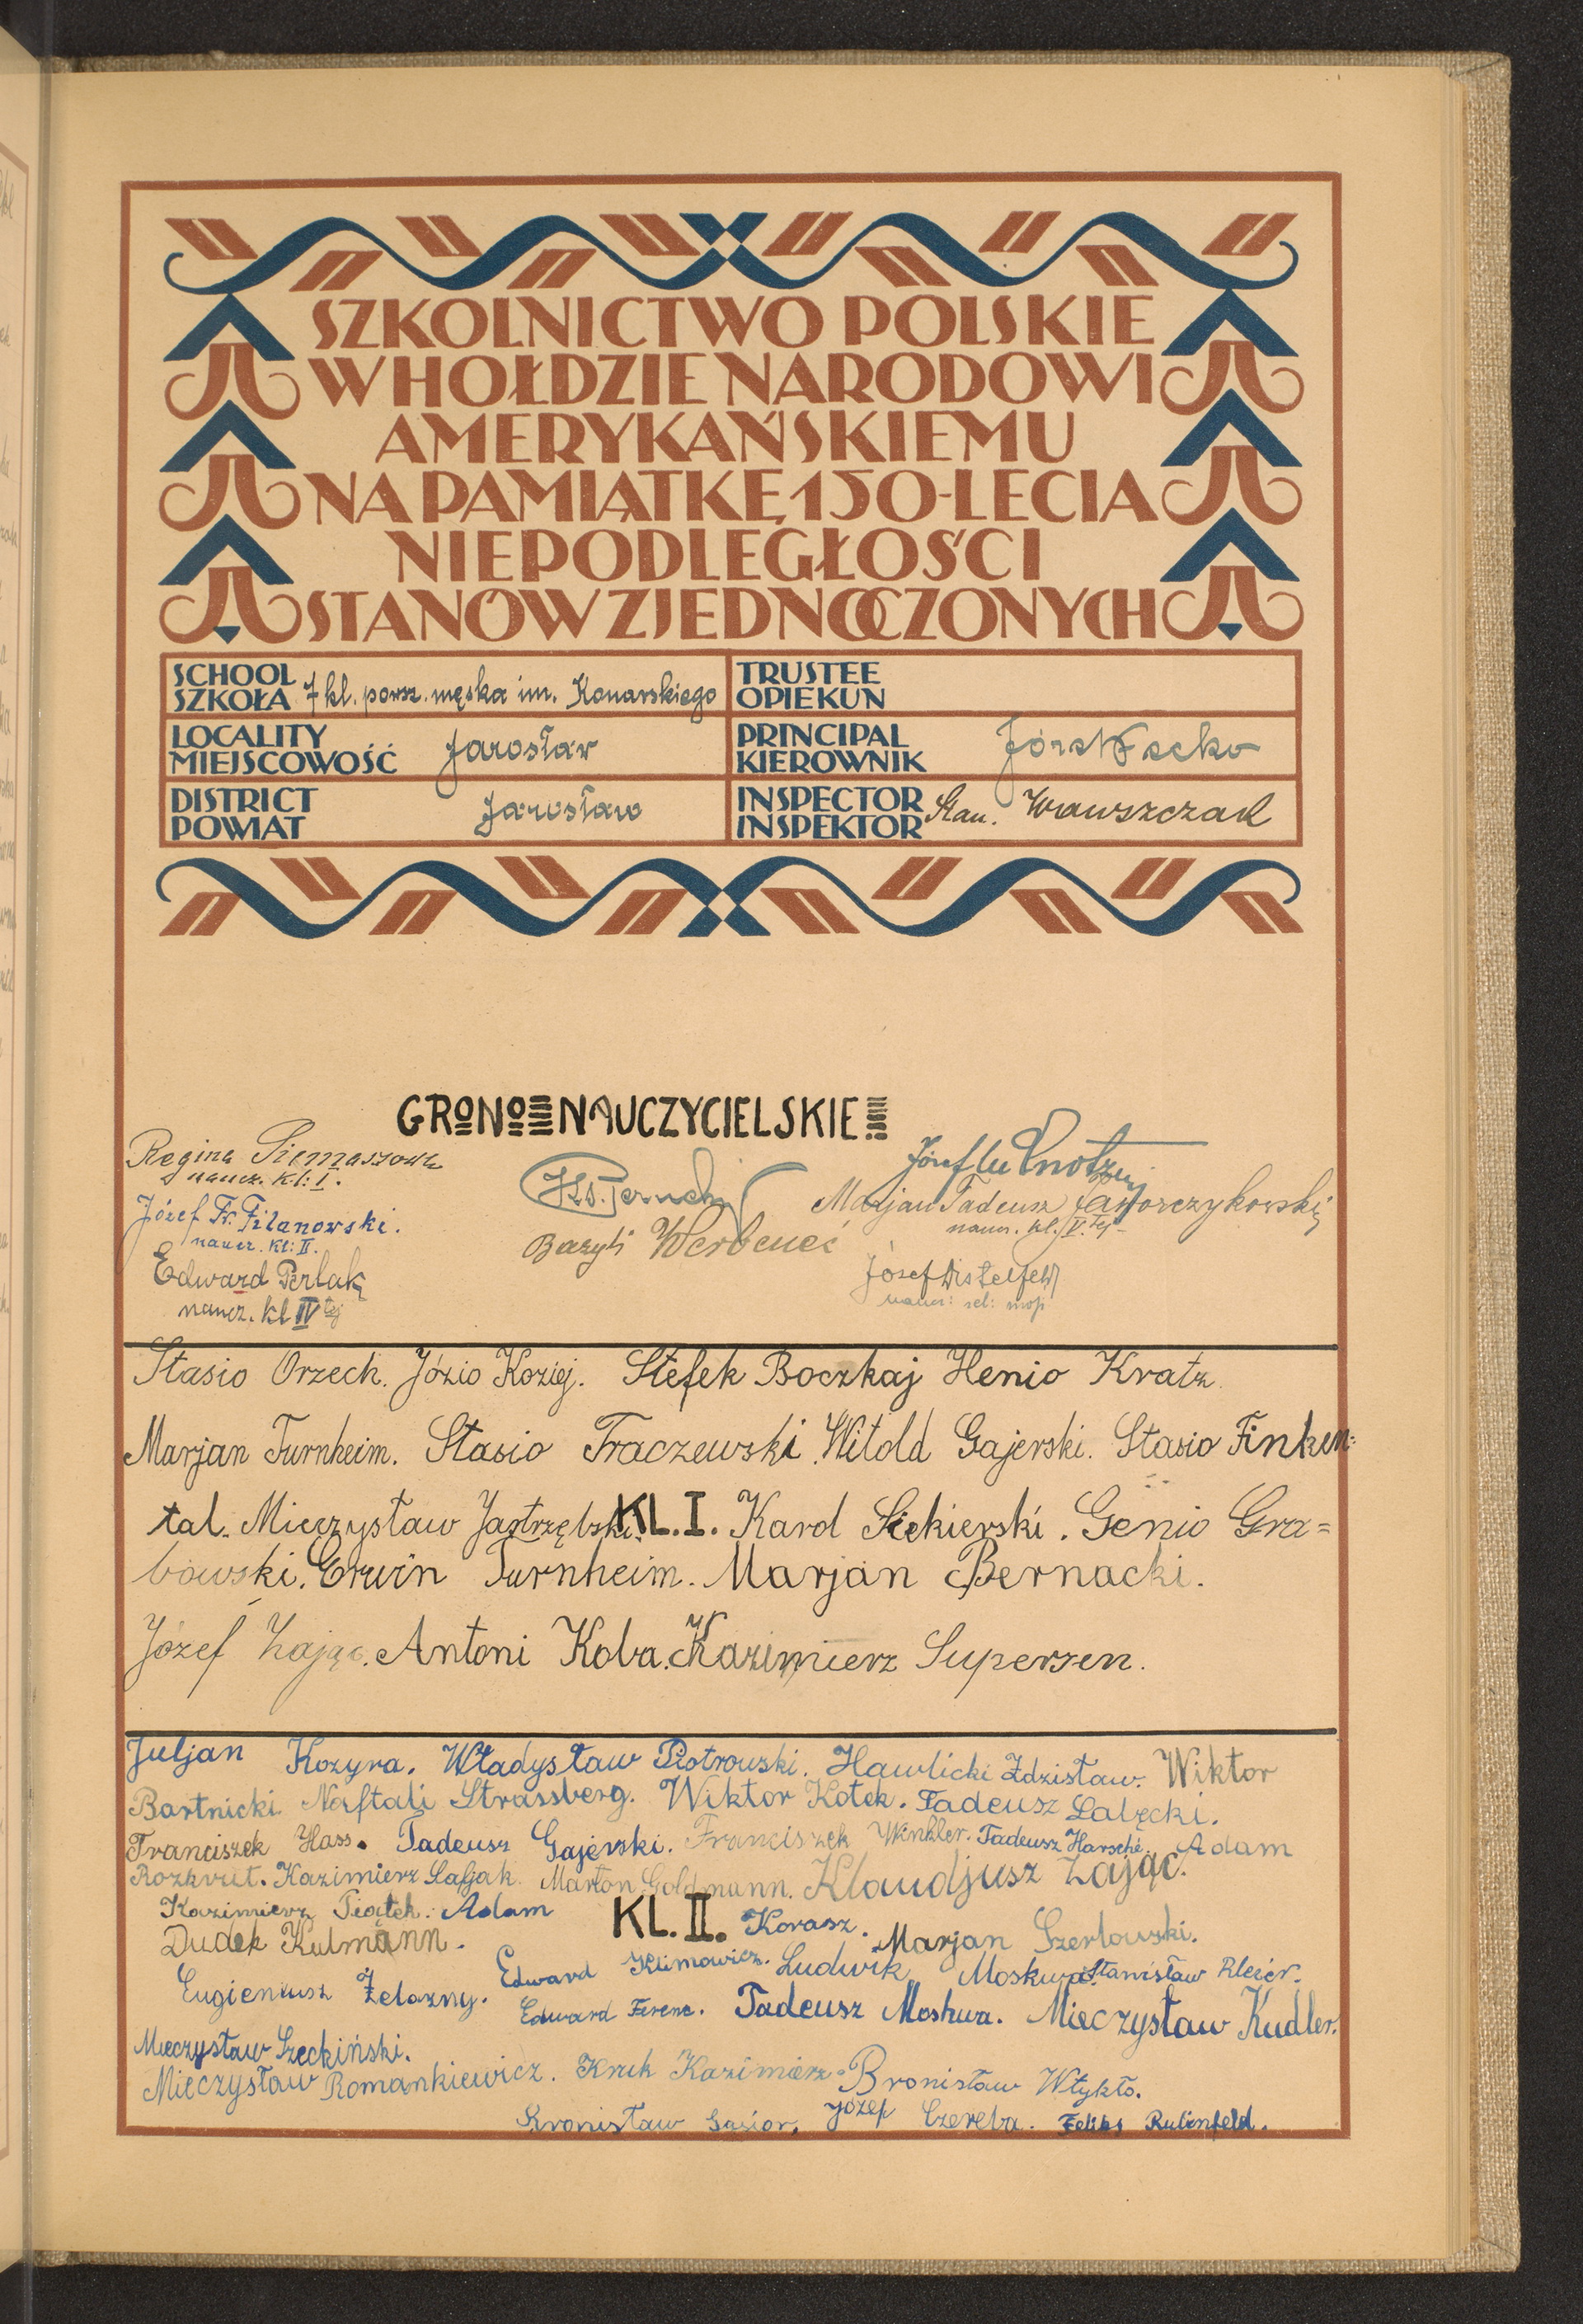 SZKOLNICTWO POLSKIE
W HOŁDZIE NARODOWI
AMERYKAŃSKIEMU
NA PAMIĄTKĘ 150-LECIA
NIEPODLEGŁOŚCI
STANÓW ZJEDNOCZONYCH
SCHOOL
SZKOŁA 7 kl. powsz. męska im. Konarskiego
TRUSTEE
OPIEKUN
LOCALITY
MIEJSCOWOŚĆ Jarosław
PRINCIPAL
KIEROWNIK Józef
DISTRICT
POWIAT Jarosław
INSPECTOR
INSPEKTOR Stan. Wawszczak
GRONO NAUCZYCIELSKIE
Regina Siemaszowa
naucz. kl: I.
Józef Fr. Filanowski.
naucz. kl: II.
Edward Perlak
naucz. kl IV tej
Bazyli Werbeneć
Józef
Marjan Tadeusz Jaworczykowski
naucz. kl. V. tej
Józef Distelfeld
naucz: rel: mojż
Stasio Orzech. Józio Koziej. Stefek Boczkaj Henio Kratz.
Marjan Turnheim. Stasio Traczewski. Witold Gajerski. Stasio Finken=
tal. Mieczysław Jastrzębski. KL. I. Karol Siekierski. Genio Gra=
bowski. Erwin Turnheim. Marjan Bernacki.
Józef Zając. Antoni Koba. Kazimierz Supersen.
Juljan Kozyra. Władysław Piotrowski. Hawlicki Zdzisław. Wiktor
Bartnicki Naftali Strassberg. Wiktor Kotek. Tadeusz Łalęcki.
Franciszek Hass. Tadeusz Gajerski. Franciszek Winkler. Tadeusz Harsché. Adam
Rozkrut. Kazimierz Saljak. Marton Goldmann. Klaudjusz Zając.
Kazimierz Piątek. Adam KL. II. Korasz. Marjan Szerlowski.
Dudek Kulmann.
Eugieniusz Żelazny. Edward Klimowicz. Ludwik Moskwa. Stanisław Kleier.
Edward Ferenc. Tadeusz Moskwa. Mieczysław Kudler.
Mieczysław Szeckiński.
Mieczysław Romankiewicz. Kruk Kazimierz. Bronisław Wtykło.
Bronisław Gąsior. Józef Czereba. Feliks Rulinfeld.